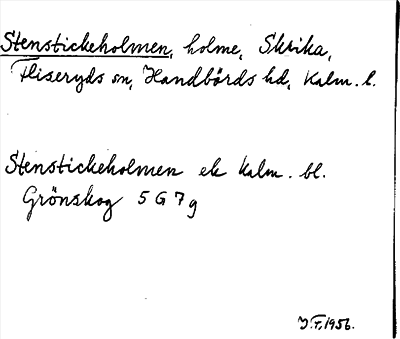 Stenstickeholmen, holme, Skrika,
Fliseryds sn, Handbörds hd, Kalm. l.
Stenstickeholmen ek Kalm. bl.
Grönskog 5 G 7 g
J.T. 1956.